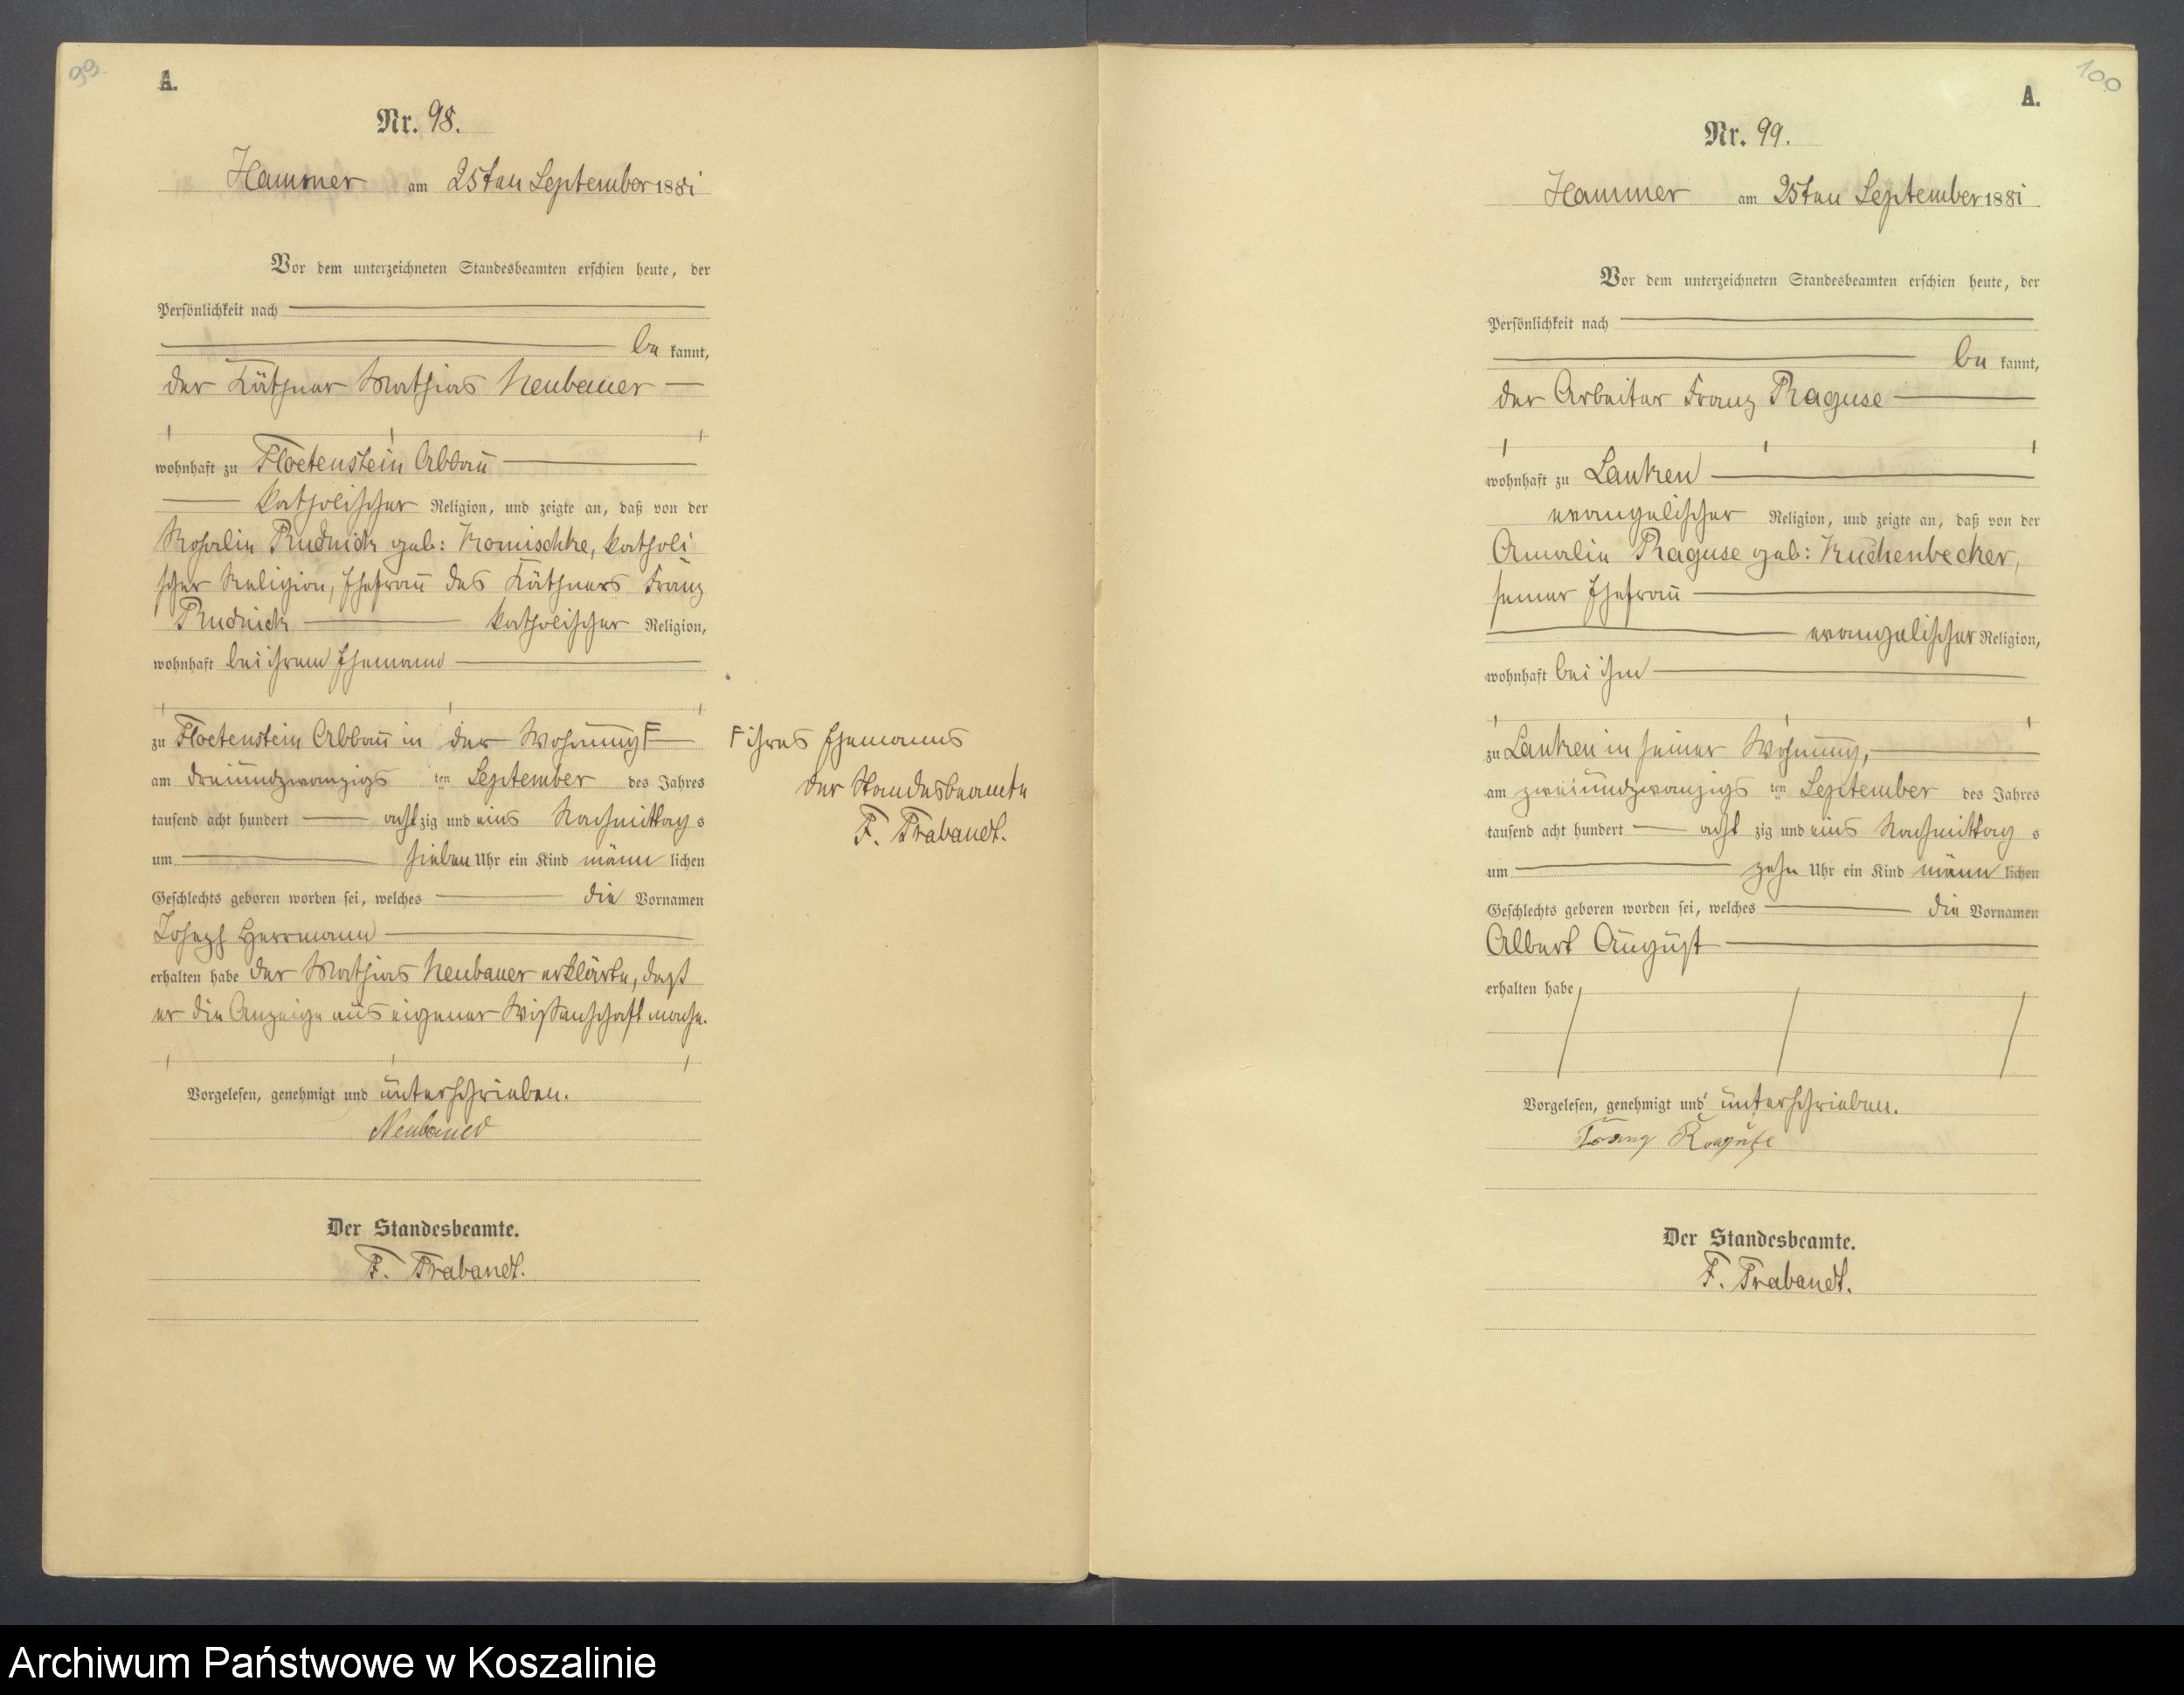 99.
A.
Nr. 98.
Hammer am 25ten September 1881
Vor dem unterzeichneten Standesbeamten erschien heute, der
Persönlichkeit nach
be kannt,
der Käthner Mathias Neubauer
wohnhaft zu Floetenstein Abbau
katholischer Religion, und zeigte an, daß von der
Rosalie Rudnick geb: Komischke, katholi
scher Religion, Ehefrau des Käthners Franz
Rudnick katholischer Religion,
wohnhaft bei ihrem Ehemann
zu Floetenstein Abbau in der Wohnung F
am dreiundzwanzigs ten September des Jahres
tausend acht hundert acht zig und eins Nachmittag s
um sieben Uhr ein Kind männ lichen
Geschlechts geboren worden sei, welches die Vornamen
Joseph Herrmann
erhalten habe der Mathias Neubauer erklärte, daß
er die Anzeige aus eigener Wissenschaft mache.
Vorgelesen, genehmigt und unterschrieben.
Neubauer
Der Standesbeamte.
F. Trabandt.
F ihres Ehemanns
der Standesbeamte
F. Trabandt.
100
A.
Nr. 99.
Hammer am 25ten September 1881
Vor dem unterzeichneten Standesbeamten erschien heute, der
Persönlichkeit nach
be kannt,
der Arbeiter Franz Raguse
wohnhaft zu Lanken
evangelischer Religion, und zeigte an, daß von der
Amalie Raguse geb: Kuchenbecker,
seiner Ehefrau
evangelischer Religion,
wohnhaft bei ihm
zu Lanken in seiner Wohnung,
am zweiundzwanzigs ten September des Jahres
tausend acht hundert acht zig und eins Nachmittag s
um zehn Uhr ein Kind männ lichen
Geschlechts geboren worden sei, welches die Vornamen
Albert August
erhalten habe
Vorgelesen, genehmigt und unterschrieben.
Franz Raguse
Der Standesbeamte.
F. Trabandt.
Archiwum Państwowe w Koszalinie